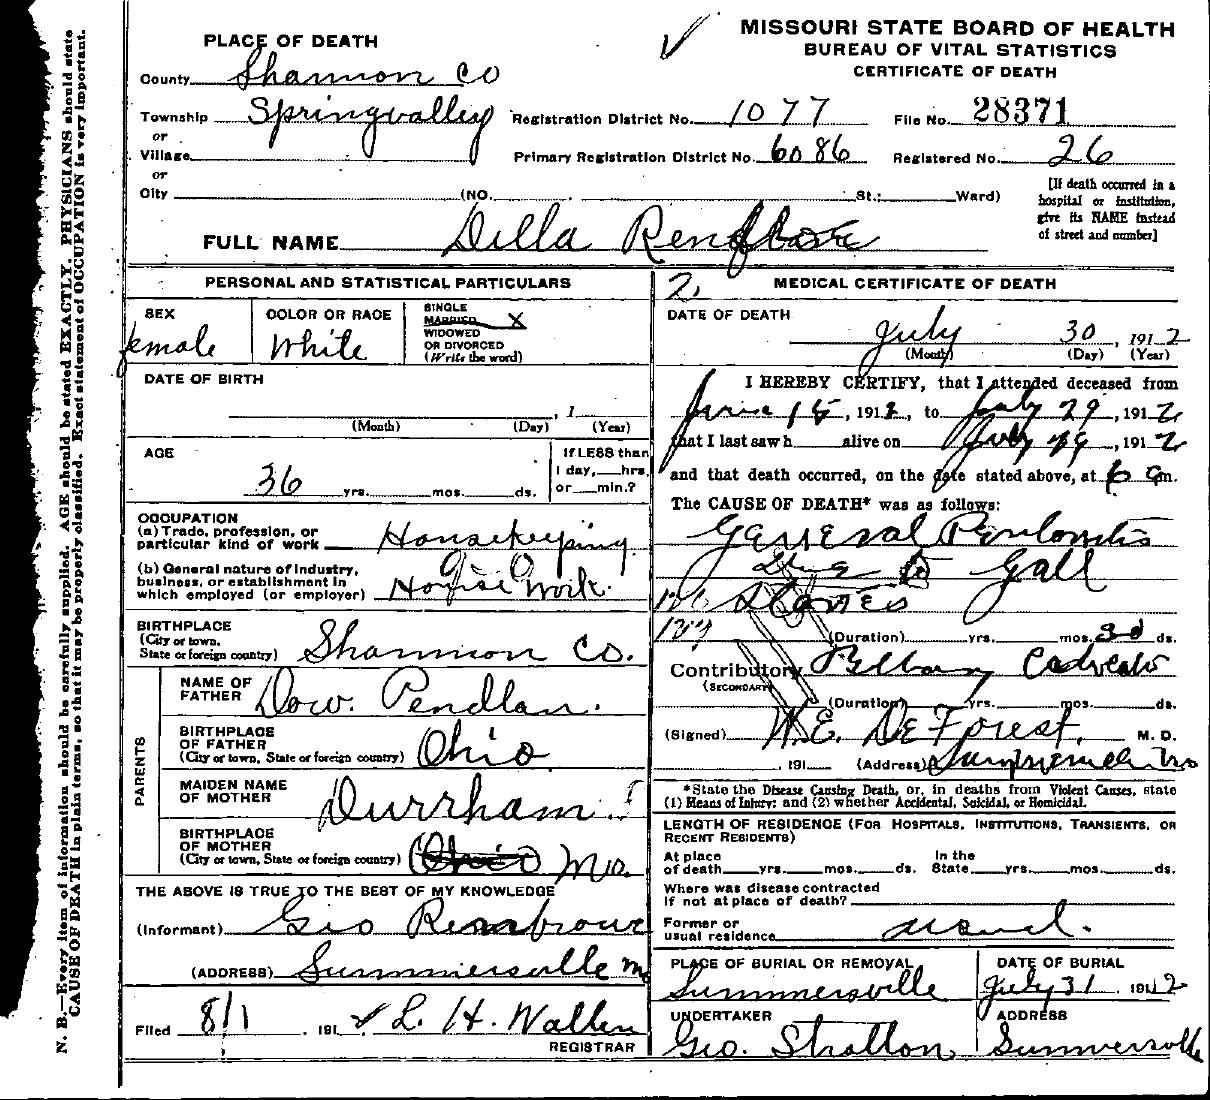 MISSOURI STATE BOARD OF HEALTH
BUREAU OF VITAL STATISTICS
CERTIFICATE OF DEATH
PLACE OF DEATH
County Shannon Co
Township Springvalley Registration District No. 1077 File No. 28371
or
Village Primary Registration District No. 6086 Registered No. 26
or
City (NO. St.; Ward)
[If death occurred in a
hospital or institution,
give its NAME instead
of street and number]
FULL NAME Dilla
PERSONAL AND STATISTICAL PARTICULARS
SEX
female
COLOR OR RACE
White
SINGLE
MARRIED X
WIDOWED
OR DIVORCED
(Write the word)
DATE OF BIRTH
, 1
(Month) (Day) (Year)
AGE
36 yrs. mos. ds.
If LESS than
1 day, hrs.
or min.?
OCCUPATION
(a) Trade, profession, or
particular kind of work Housekeeping
(b) General nature of industry,
business, or establishment in
which employed (or employer) House Work.
BIRTHPLACE
(City or town,
State or foreign country) Shannon Co.
PARENTS
NAME OF
FATHER Dow. Pendlan.
BIRTHPLACE
OF FATHER
(City or town, State or foreign country) Ohio
MAIDEN NAME
OF MOTHER Durrham
BIRTHPLACE
OF MOTHER
(City or town, State or foreign country) Ohio Mo.
THE ABOVE IS TRUE TO THE BEST OF MY KNOWLEDGE
(Informant) Geo
(ADDRESS) Summersville Mo
Filed 8/1 , 191 L. H. Wallen
REGISTRAR
2.
MEDICAL CERTIFICATE OF DEATH
DATE OF DEATH
July 30 , 1912
(Month) (Day) (Year)
I HEREBY CERTIFY, that I attended deceased from
June 15, 1912, to July 29, 1912
that I last saw h alive on July 29, 1912
and that death occurred, on the date stated above, at 6 am.
The CAUSE OF DEATH* was as follows:
General
due to Gall
Stones
(Duration) yrs. mos. ds.
Contributory
(SECONDARY)
(Duration) yrs. mos. ds.
(Signed) W.E. DeForest, M. D.
, 191 (Address)
*State the Disease Causing Death, or, in deaths from Violent Causes, state
(1) Means of Injury; and (2) whether Accidental, Suicidal, or Homicidal.
LENGTH OF RESIDENCE (FOR HOSPITALS, INSTITUTIONS, TRANSIENTS, OR
RECENT RESIDENTS)
At place In the
of death yrs. mos. ds. State yrs. mos. ds.
Where was disease contracted
if not at place of death?
Former or
usual residence
PLACE OF BURIAL OR REMOVAL
Summersville
DATE OF BURIAL
July 31 . 1912
UNDERTAKER
Geo. Stratton
ADDRESS
Summersville
N. B.—Every item of information should be carefully supplied. AGE should be stated EXACTLY. PHYSICIANS should state
CAUSE OF DEATH in plain terms, so that it may be properly classified. Exact statement of OCCUPATION is very important.